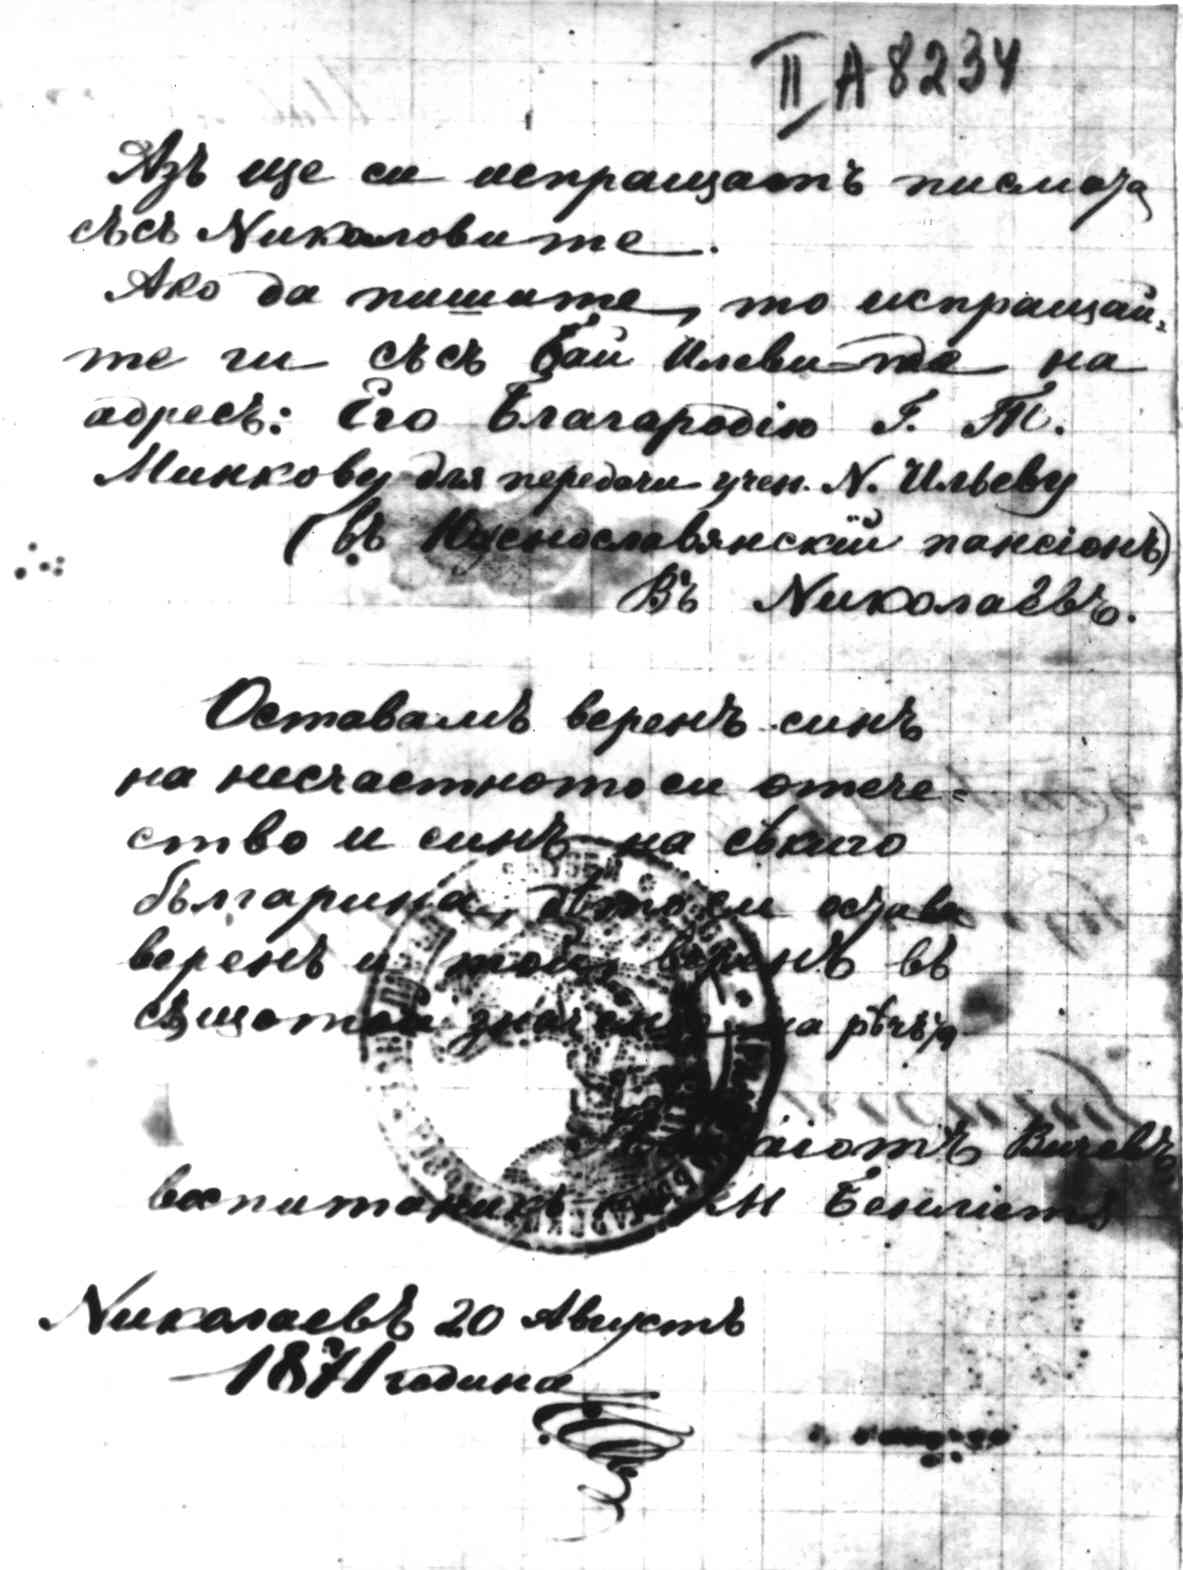 II A 8234
Азъ ще си испращамъ писмата
съсъ Николовите.
Ако да пишите, то испращай-
те ги съсъ Бай Илеви-те на
адресъ: Его Благародію Г. Т.
Минкову для передачи учен. N. Ильеву
(въ Южнославянскій пансіонъ)
Въ Николаевъ.
Оставамъ веренъ синъ
на несчастното си отече-
ство и синъ на сѣкиго
българина, дѣто си остава
веренъ и той, веренъ въ
сѫщото на рѣчьта
Вичевъ
воспитаникъ
Николаевъ 20 Августъ
1871 година